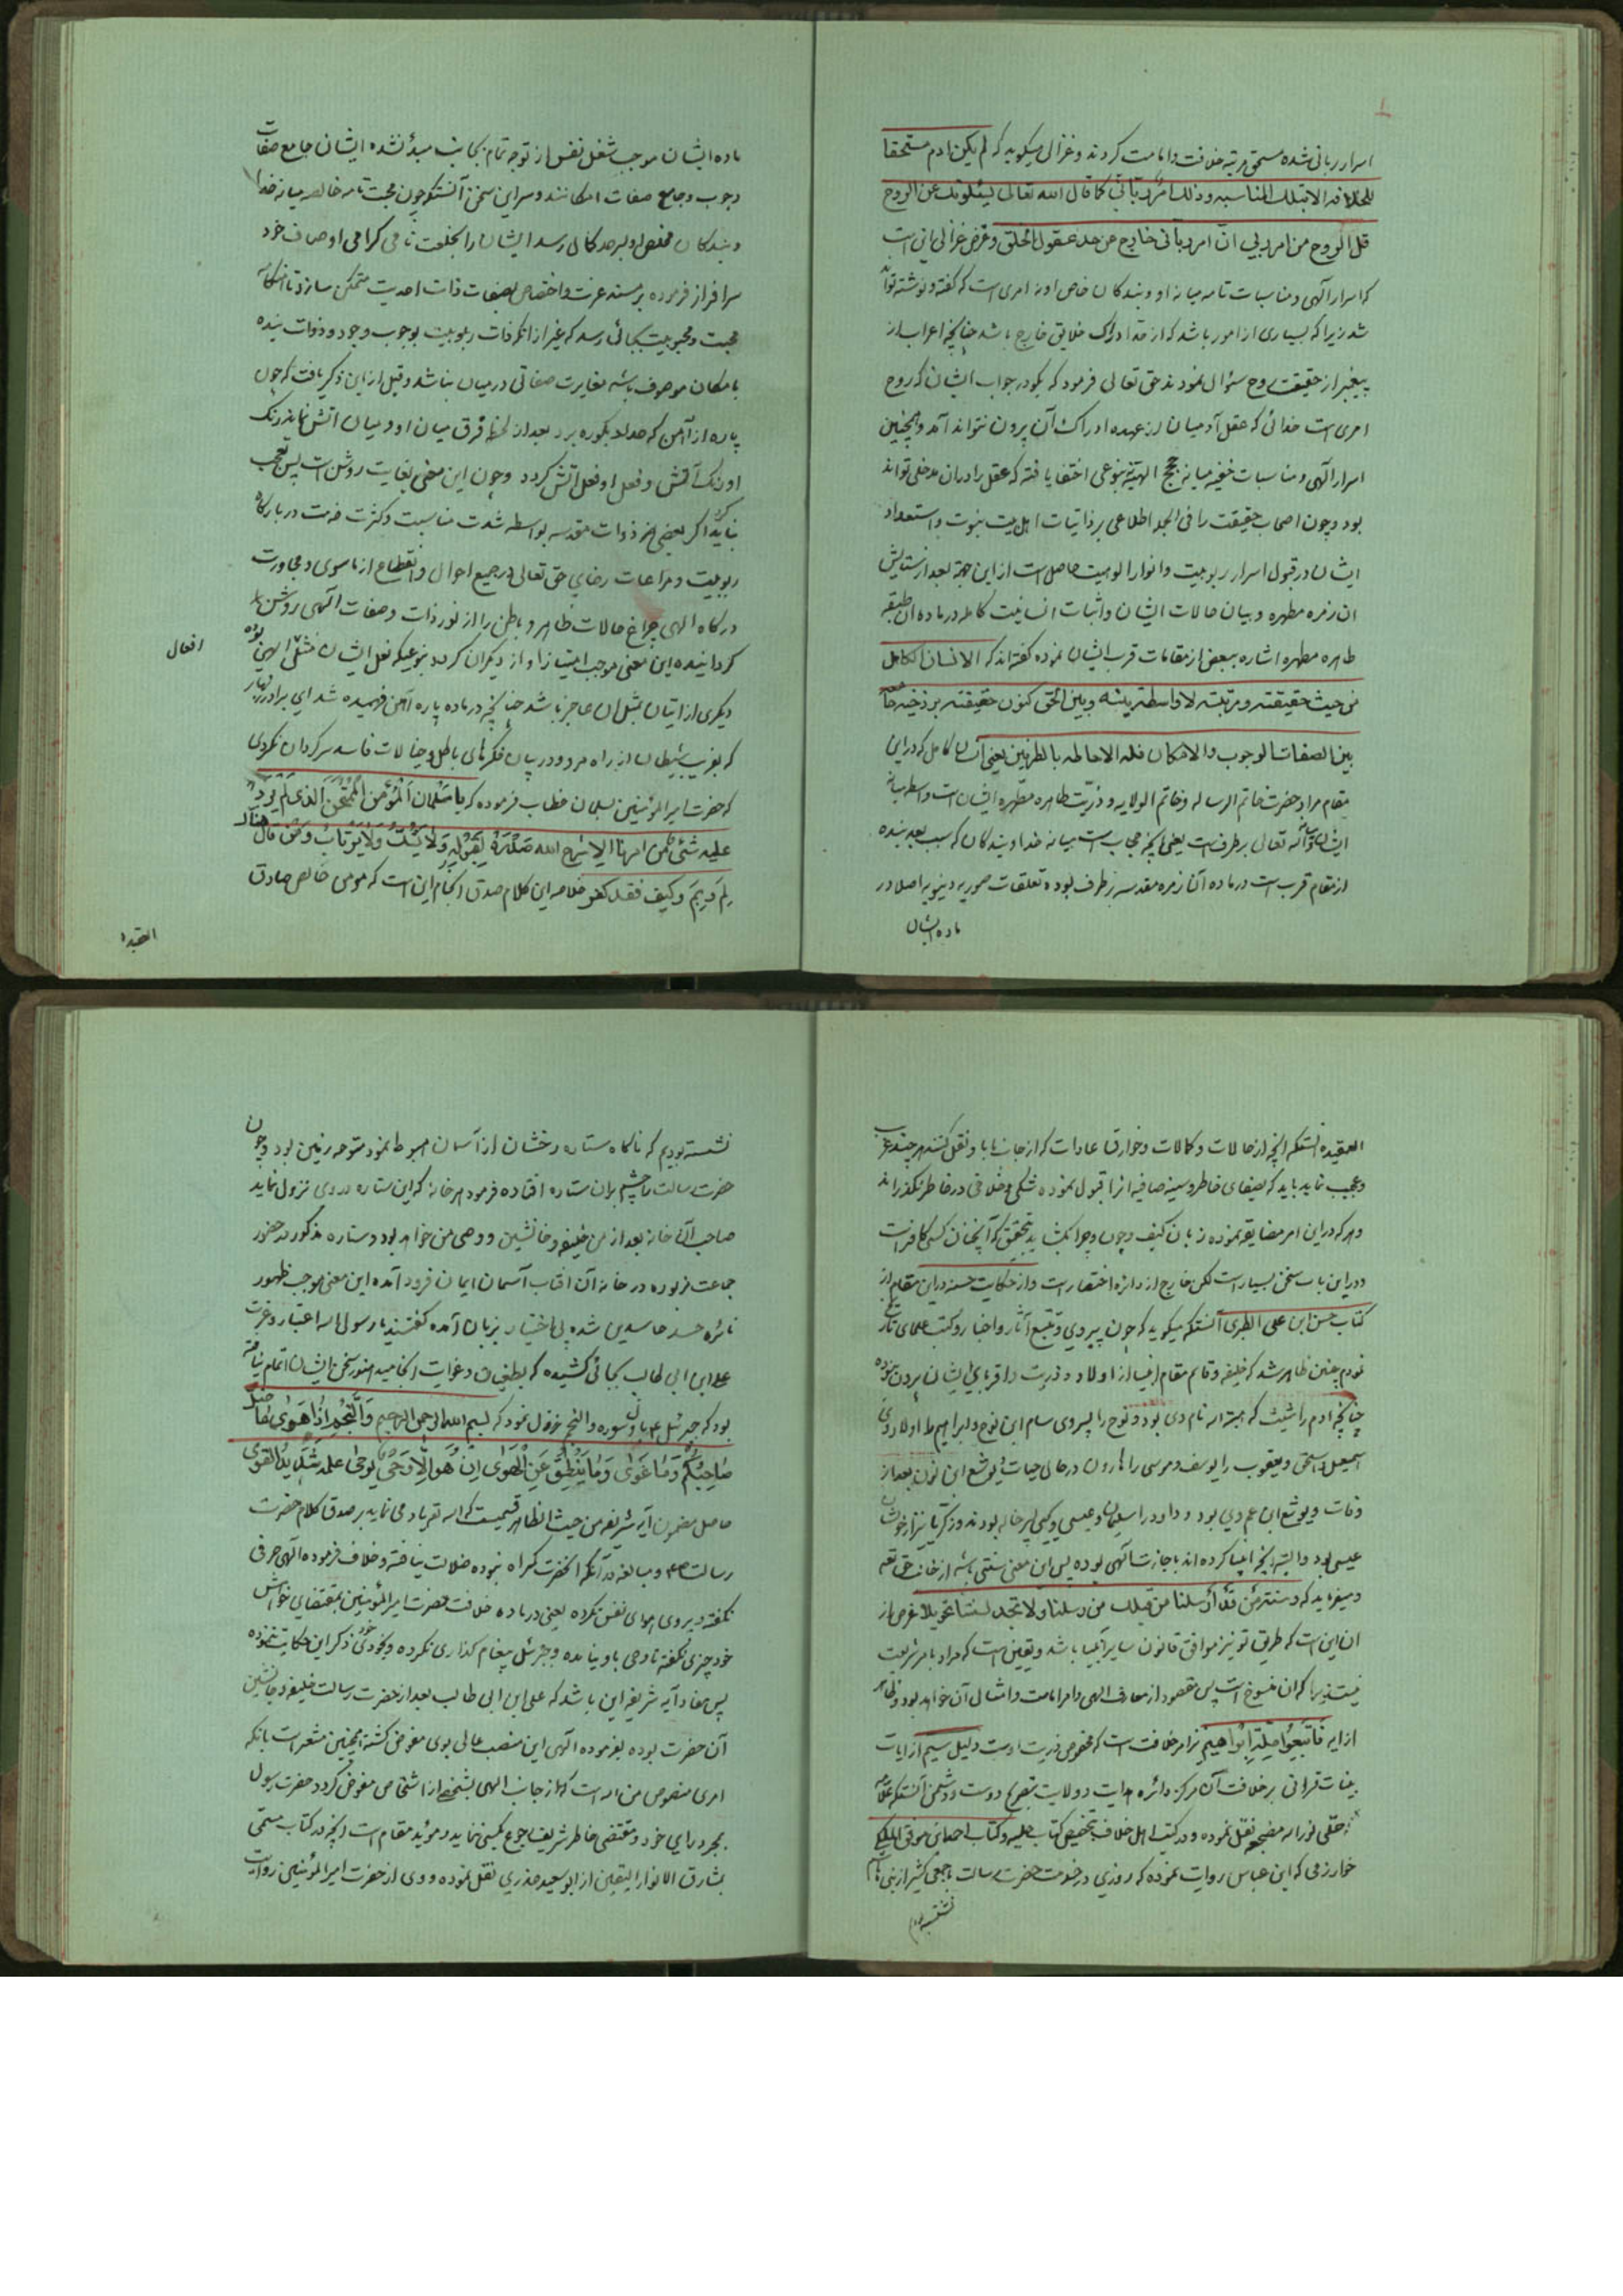 اسرار ربانی شده مستحق مرتبه خلافت و امامت کردند و غزالی میکوید که لم یکن ادم مستحقا
للخلافه الا بتلک المناسبه و ذلک امر ربانی کما قال الله تعالی یسئلونک عن الروح
قل الروح من امر ربی ان امر ربانی خارج عن حد عقول الخلق و غرض غزالی این است
که اسرار آلهی و مناسبات تامه میانه او و بندکان خاص او نه امری است که گفته و نوشته تواند
شد زیرا که بسیاری از امور باشد که از قد ادراک خلایق خارج باشد چنانچه اعراب از
پیغمبر از حقیقت روح سئوال نمودند حق تعالی فرمود که بکو در جواب ایشان که روح
امری است خدائی که عقل آدمیان از عهده ادراک آن برون نتواند آمد و همچنین
اسرار آلهی و مناسبات خفیه میانه حجج الهیه بنوعی اختفا یافته که عقل را دران مدخلی تواند
بود و چون اصحاب حقیقت را فی الجمله اطلاعی بر ذاتیات اهل بیت نبوت و استعداد
ایشان در قبول اسرار ربوبیت و انوار الوهیت حاصل است از این جهة بعد از ستایش
ان زمره مطهره و بیان حالات ایشان و اثبات انسانیت کامله در ماده ان طبقه
طاهره مطهره اشاره ببعض از مقامات قرب ایشان نموده کفته اند که الانسان الکامل
من حیث حقیقته و مرتبته لا واسطة بینه و بین الحق کون حقیقته برزخیه جامعه
بین الصفات الوجوب و الامکان فله الاحاطه بالطرفین یعنی انسان کامل که در این
مقام مراد حضرت خاتم الرساله و خاتم الولایه و ذریت طاهره مطهره ایشان است واسطه میانه
ایشان و الله تعالی بر طرف است یعنی انچه حجاب است میانه خدا و بندکان که سبب بعد بنده
از مقام قرب است در ماده آن زمره مقدسه بر طرف بوده تعلقات صوریه دنیویه اصلا در
ماده ایشان
ماده ایشان موجب شغل نفس از توجه تمام بجانب مبدء نشده ایشان جامع صفات
وجوب و جامع صفات امکانند و سر این سخن آنستکه چون محبت تامه خالصه میانه خدا
و بندکان مخلص او بر حد کمال رسد ایشان را بخلعت نامی کرامی اوصاف خود
سرافراز فرموده بر مسند عزت و اختصاص بصفات ذات احدیت متمکن سازد تا آنکه
محبت و محبوبیت بجائی رسد که غیر از انکه ذات ربوبیت بوجوب وجود و ذوات بنده
بامکان موصوف باشد مغایرت صفاتی در میان نباشد و قبل از این ذکر یافت که چون
پاره از آهن که حداد بکوره برد بعد از لحظه فرق میان او و میان اتش نماند رنک
او رنک آتش و فعل او فعل اتش کردد و چون این معنی بغایت روشن است پس تعجب
نباید کرد اکر بعضی از ذوات مقدسه بواسطه شدت مناسبت و کثرت خدمت در بارکاه
ربوبیت و مراعات رضای حق تعالی در جمیع احوال و انقطاع از ماسوی و مجاورت
درکاه الهی چراغ حالات ظاهر و باطن را از نور ذات و صفات آلهی روشن
کردانیده این معنی موجب امتیاز او از دیکران کردد بنوعیکه فعل ایشان مثل الهی بوده
افعال
دیکری از اتیان بمثل ان عاجز باشد چنانچه در ماده پاره آهن فهمیده شد ای برادر زنهار
که بفریب شیطان از راه مرو و در پیان فکرهای باطل و خیالات فاسد سرکردان نکردی
که حضرت امیر المؤمنین بسلمان خطاب فرموده که یا سلمان المؤمن الممتحن الذی لم یرد
علیه شئ من امرنا الا شرح الله صدره لقبوله و لا یشک و لا یرتاب و من قال
لم و بم و کیف فقد کفر خلاصه این کلام صدق انجام این است که مومن خالص صادق
العقیده
العقیده انستکه انچه از حالات و کمالات و خوارق عادات که از جانب ما باو نقل کنند هر چند غریب
و عجیب نماید باید که بصفای خاطر و سینه صافیه انرا قبول نموده شکی و خلافی در خاطر نکذراند
و هر که در این امر مضایقه نموده زبان بکیف و چون و چرا بکشاید بتحقیق که آنچنان کسی کافر است
و در این باب سخن بسیار است لکن خارج از دائره اختصار است و از حکایت حسنه در این مقام از
کتاب حسن ابن علی الطبری آنستکه میکوید که چون پیروی و تتبع آثار و اخبار و کتب علمای تاریخ
نودم چنین ظاهر شد که خلیفه و قایم مقام انبیا از اولاد و ذریت و اقربای ایشان بیرون نبوده
چنانچه ادم را شیث که هبة الله نام دی بود و نوح را پسروی سام ابن نوح و ابراهیم را اولاد وی
اسمعیل و اسحق و یعقوب را یوسف و موسی را هارون در حال حیات و یوشع ابن نون بعد از
وفات و یوشع ابن عم وی بود و داود را سلیمان و عیسی و یحیی پسر خاله بودند و زکریا نیز از خویشان
عیسی بود و البته انچه انبیا کرده اند باجازت آلهی بوده پس این معنی سنتی باشد از جانب حق تعالی
و میفرماید که و سنة من قد ارسلنا من قبلک من رسلنا و لا تجد لسنتنا تحویلا غرض از
ان این است که طریق تو نیز موافق قانون سایر انبیا باشد و یقین است که مراد بامر شریعت
نیست زیرا که ان منسوخ است پس مقصود از معارف الهی و امر امامت و امثال آن خواهد بود و ظاهر
از ایه فاتبعوا ملة ابراهیم نیز امر خلافت است که مخصوص ذریت اوست دلیل سیم از ایات
بینات قرانی بر خلافت آن مرکز دائره هدایت و ولایت بتصریح دوست و دشمن آنستکه علامه
حلی نور الله مضجعه نقل نموده و در کتب اهل خلاف بتخصیص کتاب حلیه و کتاب احصائی موفق المکی
خوارزمی که ابن عباس روایت نموده که روزی در خدمت حضرت رسالت با جمعی کثیر از بنی هاشم
نشسته بودیم
نشسته بودیم که ناکاه ستاره درخشان از آسمان هبوط نمود متوجه زمین بود و چون
حضرت رسالت را چشم بران ستاره افتاده فرمود هر خانه که این ستاره در وی نزول نماید
صاحب آن خانه بعد از من خلیفه و جانشین و وصی من خواهد بود و ستاره مذکور در حضور
جماعت مزبوره در خانه آن افتاب آسمان ایمان فرود آمده این معنی موجب ظهور
نائره حسد حاسدین شده بی اختیار بزبان آمده کفتند یا رسول الله اعتبار و عزت
علی ابن ابی طالب بجائی کشیده که بطغیان و غوایت انجامید هنوز سخن ایشان اتمام نیافته
بود که جبرئیل ع بان سوره و النجم نزول نمود که بسم الله الرحمن الرحیم وَالنَّجْمِ اِذَا هَوٰی مَا ضَلَّ
صَاحِبُکُمْ وَمَا غَوٰی وَمَا یَنْطِقُ عَنِ الْهَوٰی اِنْ هُوَ اِلَّا وَحْیٌ یُوحٰی علمه شَدِیدُ الْقُوٰی
حاصل مضمون آیه شریفه من حیث الظاهر قسمیست که الله تعم یاد می نماید بر صدق کلام حضرت
رسالت ص و مبالغه در آنکه انحضرت کمراه نبوده ضلالت نیافته و خلاف فرموده آلهی حرفی
نکفته و پیروی هوای نفس نکرده یعنی در باده خلافت حضرت امیر المؤمنین بمقتضای خواهش
خود چیزی نکفته تا وحی باو نیامده و جبرئیل پیغام کذاری نکرده بخودی خود ذکر این حکایت ننموده
پس مفاد آیه شریفه این باشد که علی ابن ابی طالب بعد از حضرت رسالت خلیفه و جانشین
آن حضرت بوده بفرموده آلهی این منصب عالی بوی مفوض کشته همچنین مشعر است بانکه
امری منصوص من الله است که از جانب الهی بشخصی از اشخاص مفوض کردد حضرت رسول
بمجرد رای خود و مقتضی خاطر شریف رجوع بکسی نماید و موید مقام است انچه در کتاب مسمی
بمشارق الانوار الیقین از ابو سعید خدری نقل نموده و وی از حضرت امیر المؤمنین روایت